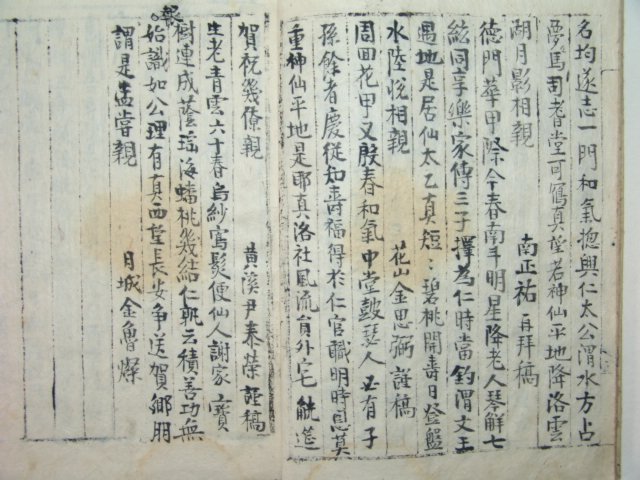 名均遂志一門和氣摠與仁太公渭水方占
夢馬司耆堂可寫真望若神仙平地降洛雲
湖月影相親
南正祐再拜稿
德門華甲際今春南斗明星降老人琴解七
絃同享樂家傳三子擇為仁時當釣渭文王
遇地是居仙太乙真短〻碧桃開壽日登盤
水陸悅相親
花山金思弼謹稿
周回花甲又殷春和氣中堂鼓瑟人又有子
孫餘者慶從知壽福得於仁官職明時恩莫
重神仙平地是耶真洛社風流員外宅觥籌
賀祝幾僚親
黃溪尹泰榮謹稿
生老青雲六十春烏紗寫髮便仙人謝家寶
樹連成蔭瑤海蟠桃幾結仁孰云積善功無
報始識如公理有真西望長安爭送賀鄉朋
謂是孟嘗親
月城金魯燦